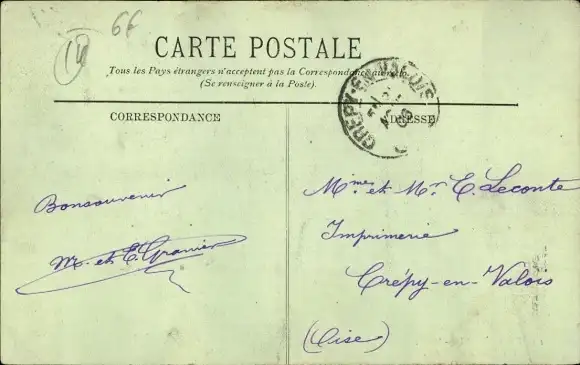 14
66
CARTE POSTALE
Tous les Pays étrangers n'acceptent pas la Correspondance au recto.
(Se renseigner à la Poste).
CRÉPY-EN-VALOIS
CORRESPONDANCE
ADRESSE
Bonsouvenir
M. et E. Granier
Mmes et Mr E. Leconte
Imprimerie
Crépy-en-Valois
(Oise)